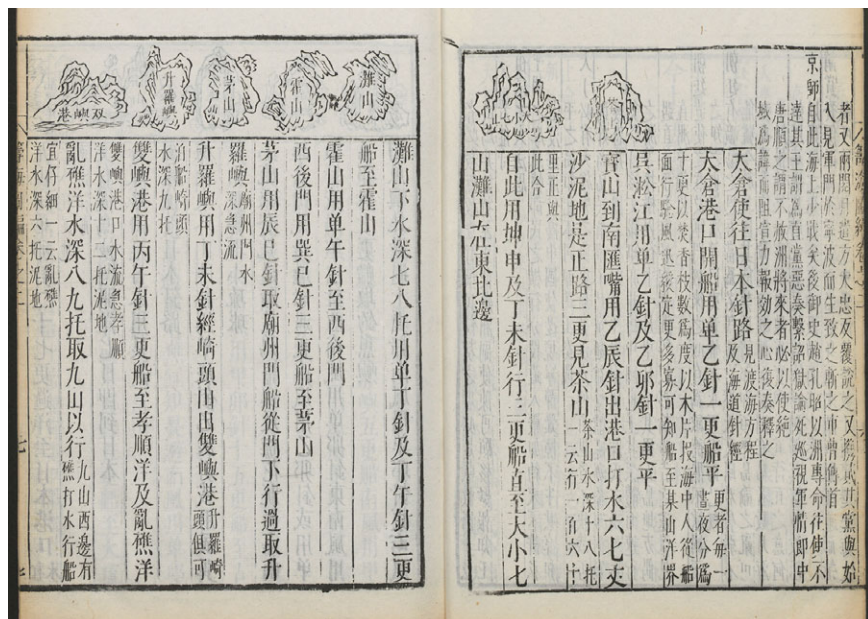 者又兩閱月遣方大忠反覆說之又擒貳其黨與始
入見軍門於寧波而生致之斬之市曹傳首
京師自此海上少戢矣後御史趙孔昭以洲專命往使不
達其王詔爲直黨惡奏繫詔獄論死巡視軍情即中
唐順之謂不赦洲將來者必以使絕
域爲諱而阻宣力報効之心復奏釋之
太倉使往日本針路 見渡海方程
及海道針經
太倉港口開船用单乙針一更船平 更者每一
晝夜分爲
十更以焚香枝數爲度以木片投海中人從船
面行驗風迅緩定更多寡可知船至某山洋界
吳淞江用单乙針及乙卯針一更平
寶山到南匯嘴用乙辰針出港口打水六七丈
沙泥地是正路三更見茶山 茶山水深十八托
一云行一百六十
里正與
此合
自此用坤申及丁未針行三更船直至大小七
山灘山在東北邊
茶山
大小七山
灘山
霍山
茅山
升羅嶼
双嶼港
灘山下水深七八托用单丁針及丁午針三更
船至霍山
霍山用单午針至西後門
西後門用巽巳針三更船至茅山
茅山用辰巳針取廟州門船從門下行過取升
羅嶼 廟州門水
深急流
升羅嶼用丁未針經崎頭山出雙嶼港 升羅崎
頭俱可
泊船崎頭
水深九托
雙嶼港用丙午針三更船至孝順洋及亂礁洋
雙嶼港口水流急孝順
洋水深十二托泥地
亂礁洋水深八九托取九山以行 九山西邊有
礁打水行船
宜仔細一云亂礁
洋水深六托泥地
籌海圖編卷之二
七